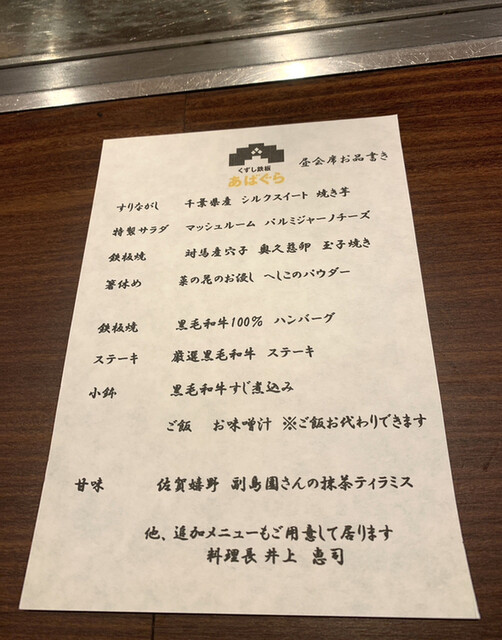 くずし鉄板
あばぐら
昼会席お品書き
すりながし 千葉県産 シルクスイート 焼き芋
特製サラダ マッシュルーム パルミジャーノチーズ
鉄板焼 対馬産穴子 奥久慈卵 玉子焼き
箸休め 菜の花のお浸し へしこのパウダー
鉄板焼 黒毛和牛100% ハンバーグ
ステーキ 厳選黒毛和牛 ステーキ
小鉢 黒毛和牛すじ煮込み
ご飯 お味噌汁 ※ご飯お代わりできます
甘味 佐賀嬉野 副島園さんの抹茶ティラミス
他、追加メニューもご用意して居ります
料理長 井上 恵司